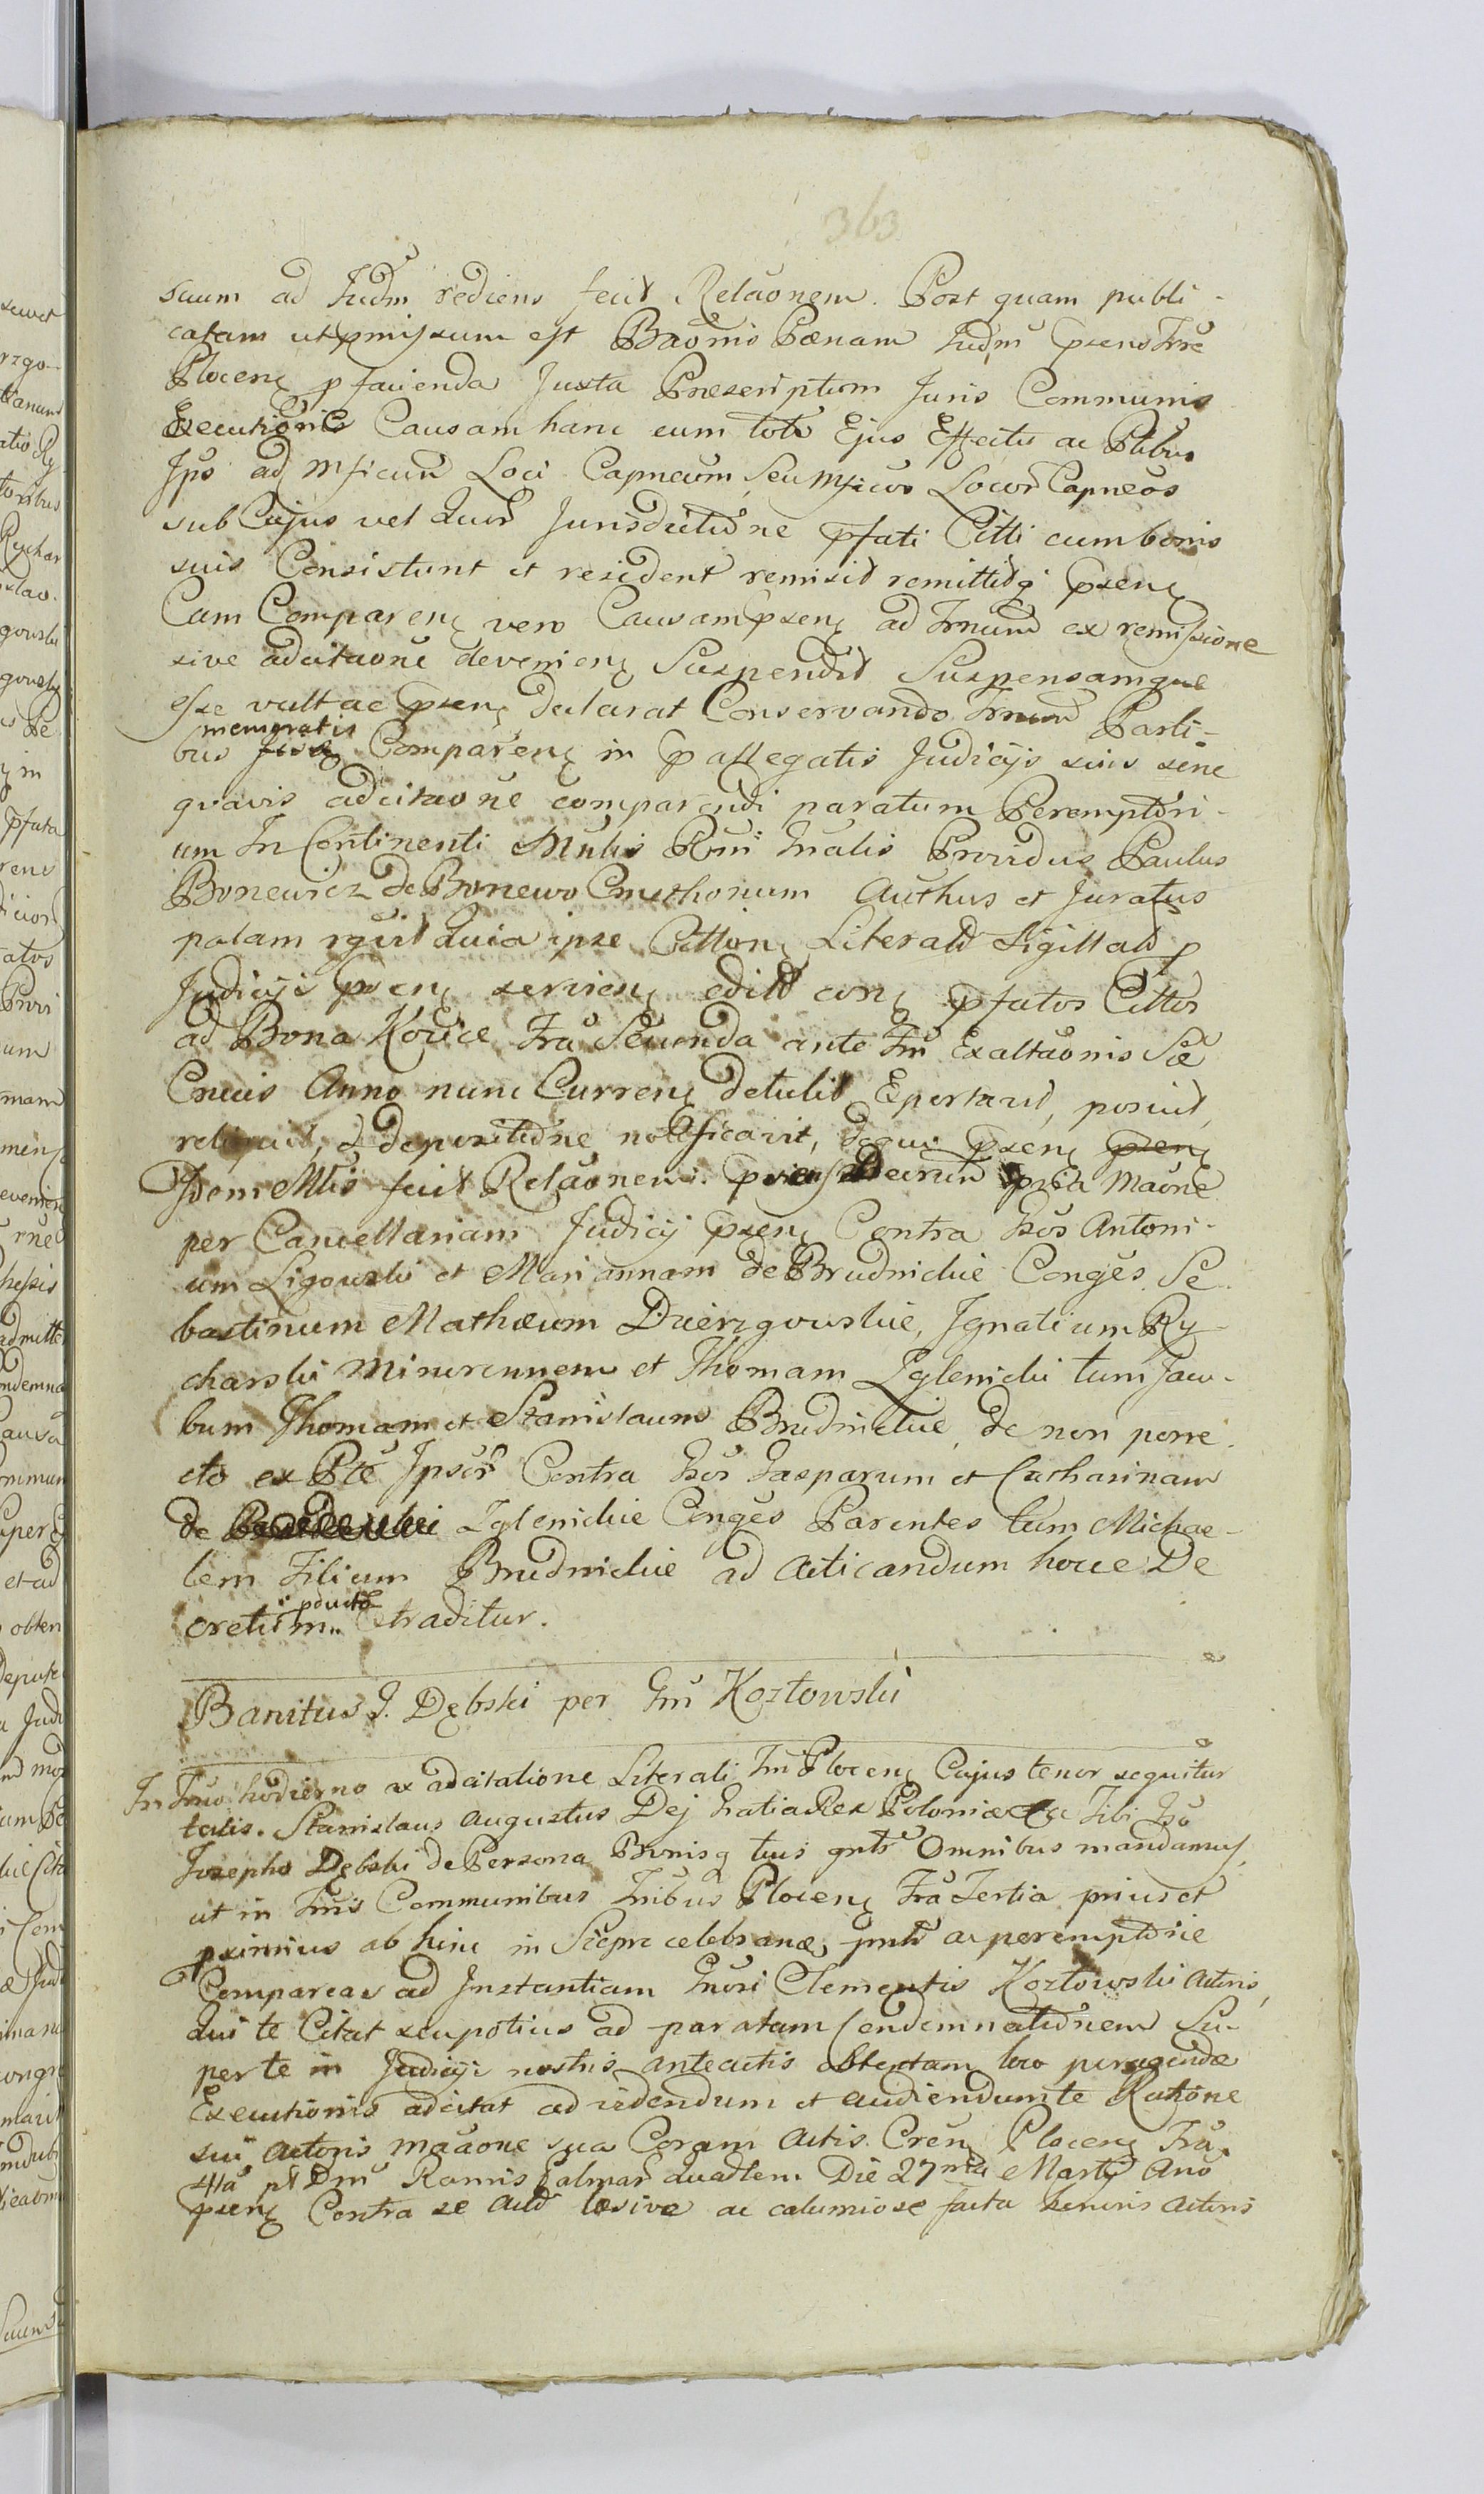 363
suum ad Judm rediens fecit Relaõnem. Post quam publi-
catam ut pmissum est Baõnis Pænam Judm psens Trre
Plocen p facienda Juxta Præscriptum Juris Communis
Executione Causam hanc cum toto Ejus Effectu ac Ptibus
Ips ad Mficum Loci Capneum seu Mficos Locor Capneos
sub Cujus vel Quor Jurisdictione pfati Citti cum bonis
suis Consistunt et resident remisit remittitq psen
Cum Comparen vero Causam psen ad Trnum ex remissione
sive adcitaone devenien Suspendit Suspensamque
esse vult ac psen declarat Conservando Trnum Parti-
memoratis
bus Comparen in p allegatis Judicijs suis sine
quavis adcitaone comparendi paratum Peremptori-
um In Continenti Mnlis Rni Gnalis Providus Paulus
Bonewicz de Bonewo Cmethonum Authus et Juratus
palam rgvit Quia ipse Citton Literalr Sigillatr p
Judicijs psen servien editt con pfatos Cittos
ad Bona Kozice Fra Secunda ante Fm Exaltaonis Sæ
Crucis Anno nunc Curren detulit Eportavit, posuit,
reliquit, & depositione notificavit, de quo psen psen
Idem Mlis fecit Relaonem. psens Decretum pria Maone
per Cancellariam Judicij psen Contra Gsos Antoni-
um Ligowski et Mariannam de Brudnickie Conges Se
bastinum Mathæum Dzierzgowskie, Ignatium Ry-
charski Minorennem et Thomam Zglenicki tum Jaco-
bum Thomam et Stanislaum Brudnickie de non porre-
cto ex Pte Ipsor Contra Gsos Gasparum et Catharinam
de Zglenickie Conges Parentes tum Michae-
lem Filium Brudnickie ad acticandum hocce De
pducto
cretum extraditur.
Banitus J. Dębski per Gm Kozłowski
In Trno hodierno ex adcitatione Literali Tm Plocen Cujus tenor sequitur
talis. Stanislaus Augustus Dej Gratia Rex Poloniæ Tibi Gso
Josepho Dębski de Persona Bonisq tuis gntr Omnibus mandamus,
ut in Tnis Communibus Tnibus Plocen Fra Tertia prius et
pximius ab hinc in Sieprc celebrand, pntr ac peremptorie
Compareas ad Instantiam Gnosi Clementis Kozłowski Actoris,
Qui te Citat seu potius ad paratam Condemnationem Su-
per te in Judicijs nostris anteactis obtentam loco peragendæ
Executionis adcitat ad videndum et audiendum te Ratione
sui Actoris maãone sua Coram Actis Cren Plocen Fra
4ta pt Dm Ramis Palmar Quadlem Die 27ma Martij Ano
psen Contra se Auld læsive ac calumiose facta Generis Actoris